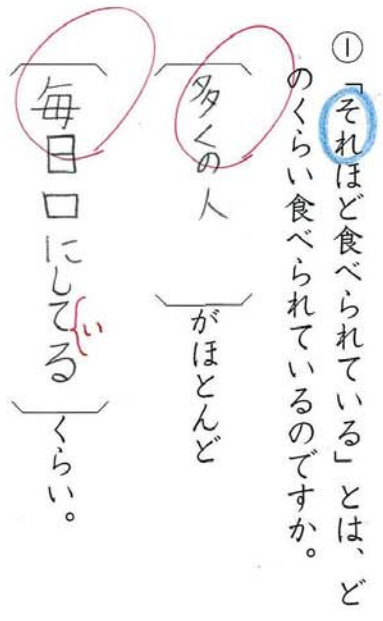 ① 「それほど食べられている」とは、ど
のくらい食べられているのですか。
多くの人 がほとんど
毎日口にしてる くらい。
い